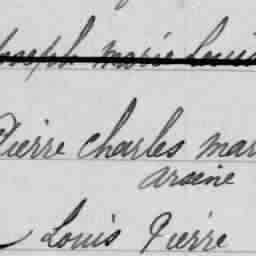 Joseph Marie Louis
Pierre Charles mar
arsène
Louis Pierre